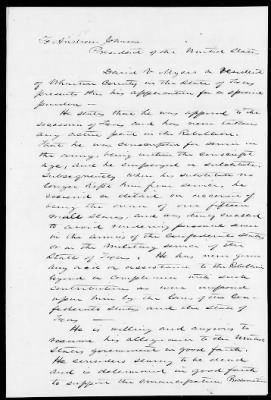 To Andrew Johnson
President of the United States
David V. Myers a resident
of Wharton County in the State of Texas
presents this his application for a special
pardon —
He states that he was opposed to the
secession of Texas and has never taken
any active part in the Rebellion.
That he was conscripted for service in
the army, being within the conscript
age, and he employed a substitute.
Subsequently when his substitute no
longer kept him from service, he
secured a detail on account of
being the owner of over fifteen
small slaves, and was thus enabled
to avoid rendering personal service
in the armies of the Confederate States
or in the Military service of the
State of Texas. He has never given
any aid or assistance to the Rebellion
beyond a compliance with such
contributions as were imposed
upon him by the laws of the Con-
federate States and the State of
Texas —
He is willing and anxious to
resume his allegiance to the United
States government in good faith.
He considers slavery to be dead
and is determined in good faith
to support the emancipation